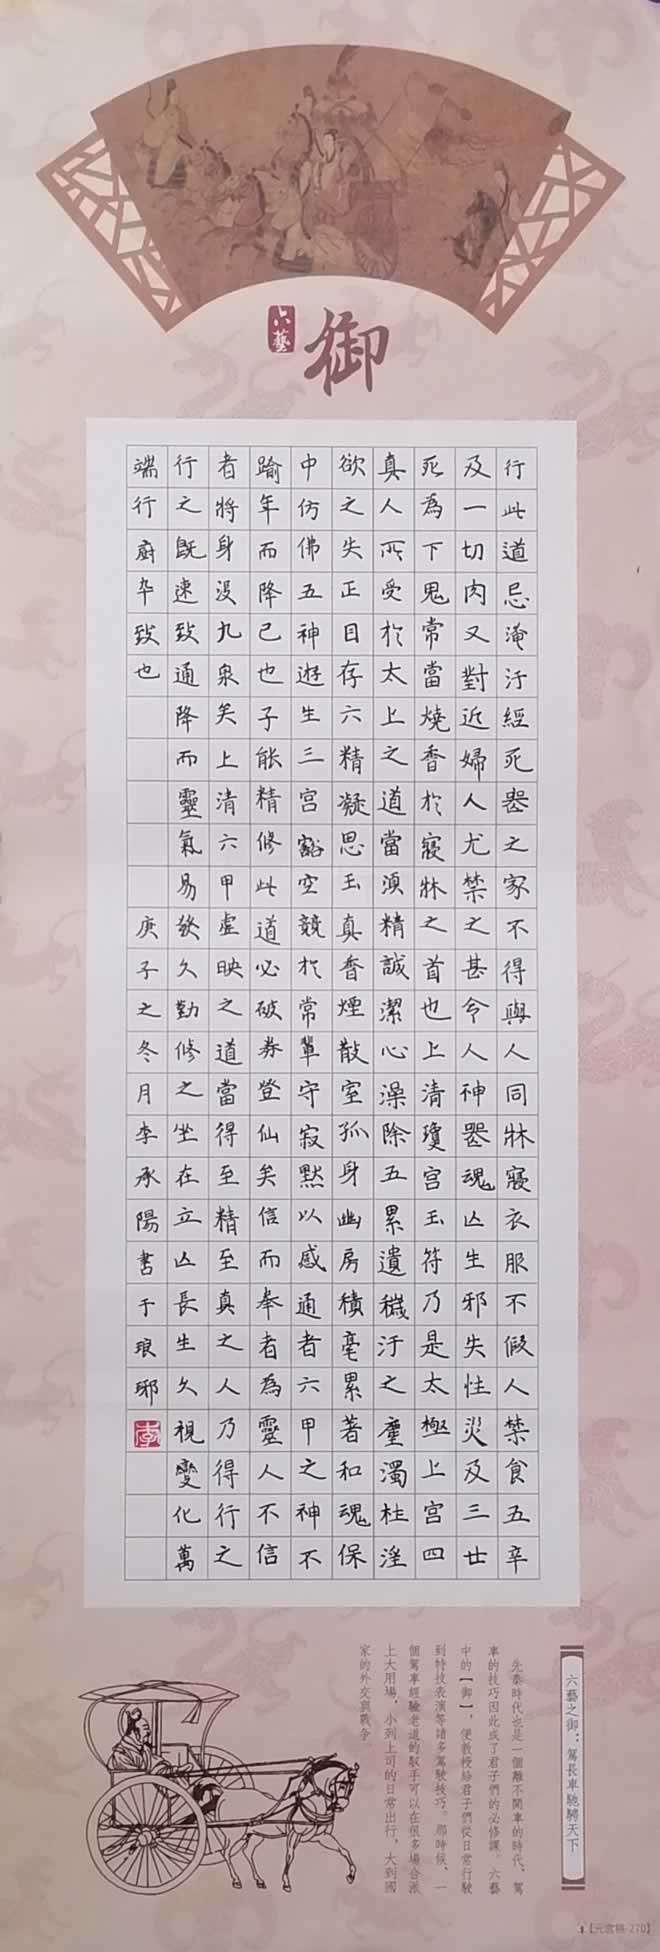 六藝
御
行此道忌淹汙經死喪之家不得與人同牀寢衣服不假人禁食五辛
及一切肉又對近婦人尤禁之甚令人神喪魂亡生邪失性災及三世
死為下鬼常當燒香於寢牀之首也上清瓊宮玉符乃是太極上宮四
真人所受於太上之道當須精誠潔心澡除五累遺穢汙之塵濁杜淫
欲之失正目存六精凝思玉真香煙散室孤身幽房積毫累著和魂保
中仿佛五神遊生三宮豁空競於常輩守寂默以感通者六甲之神不
踰年而降己也子能精修此道必破券登仙矣信而奉者為靈人不信
者將身沒九泉矣上清六甲虛映之道當得至精至真之人乃得行之
行之既速致通降而靈氣易發久勤修之坐在立亡長生久視變化萬
端行廚卒致也 庚子之冬月李承陽書于琅琊
李
六藝之御：駕長車馳騁天下
先秦時代也是一個離不開車的時代，駕
車的技巧因此成了君子們的必修課。六藝
中的【御】，便教授給君子們從日常行駛
到特技表演等諸多駕駛技巧。那時候，一
個駕車經驗老道的馭手可以在很多場合派
上大用場，小到上司的日常出行，大到國
家的外交與戰爭
【元宮格-270】